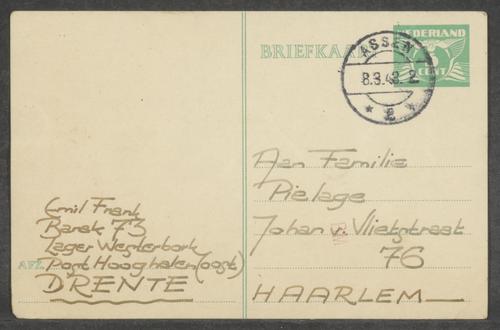 NEDERLAND
BRIEFKAA
CENT
ASSEN
8.3.43. 2
2
Aan Familie
Pielage
Johan v. Vlietstraat
76
HAARLEM
Emil Frank
Barak 73
Lager Westerbork
AFZ. Post Hooghalen (oost)
DRENTE